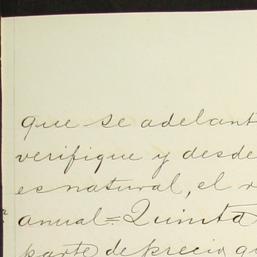 que se adelant
verifique y desde
es natural, el r
anual = Quinta
parte de precio qu